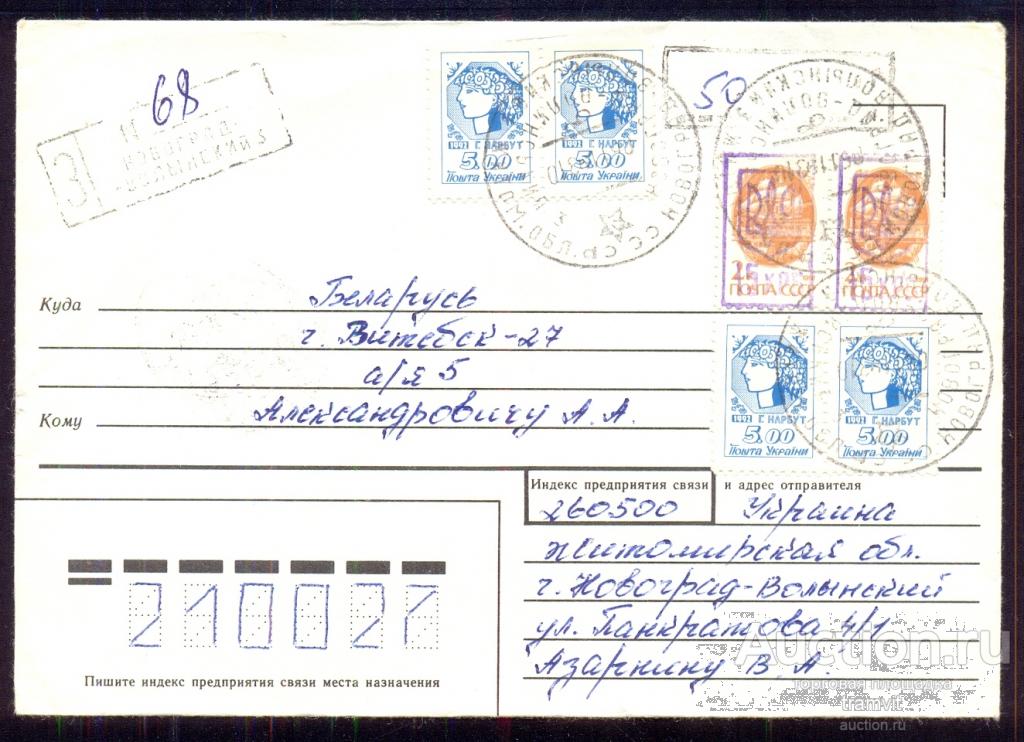 68
50
З
НОВОГРАД-
ВОЛЫНСКИЙ 5
1992 Г. НАРБУТ
5.00
Пошта України
1992 Г. НАРБУТ
5.00
Пошта України
ПОЧТА СССР
ПОЧТА СССР
1992 Г. НАРБУТ
5.00
Пошта України
1992 Г. НАРБУТ
5.00
Пошта України
Куда
Беларусь
г. Витебск-27
а/я 5
Кому
Александровичу А. А.
Индекс предприятия связи и адрес отправителя
260500 Украина
Житомирская обл.
г. Новоград-Волынский
ул. Панкратова 4/1
Азаркину В. А.
210027
Пишите индекс предприятия связи места назначения
Auction.ru
торговая площадка
tramvit
auction.ru